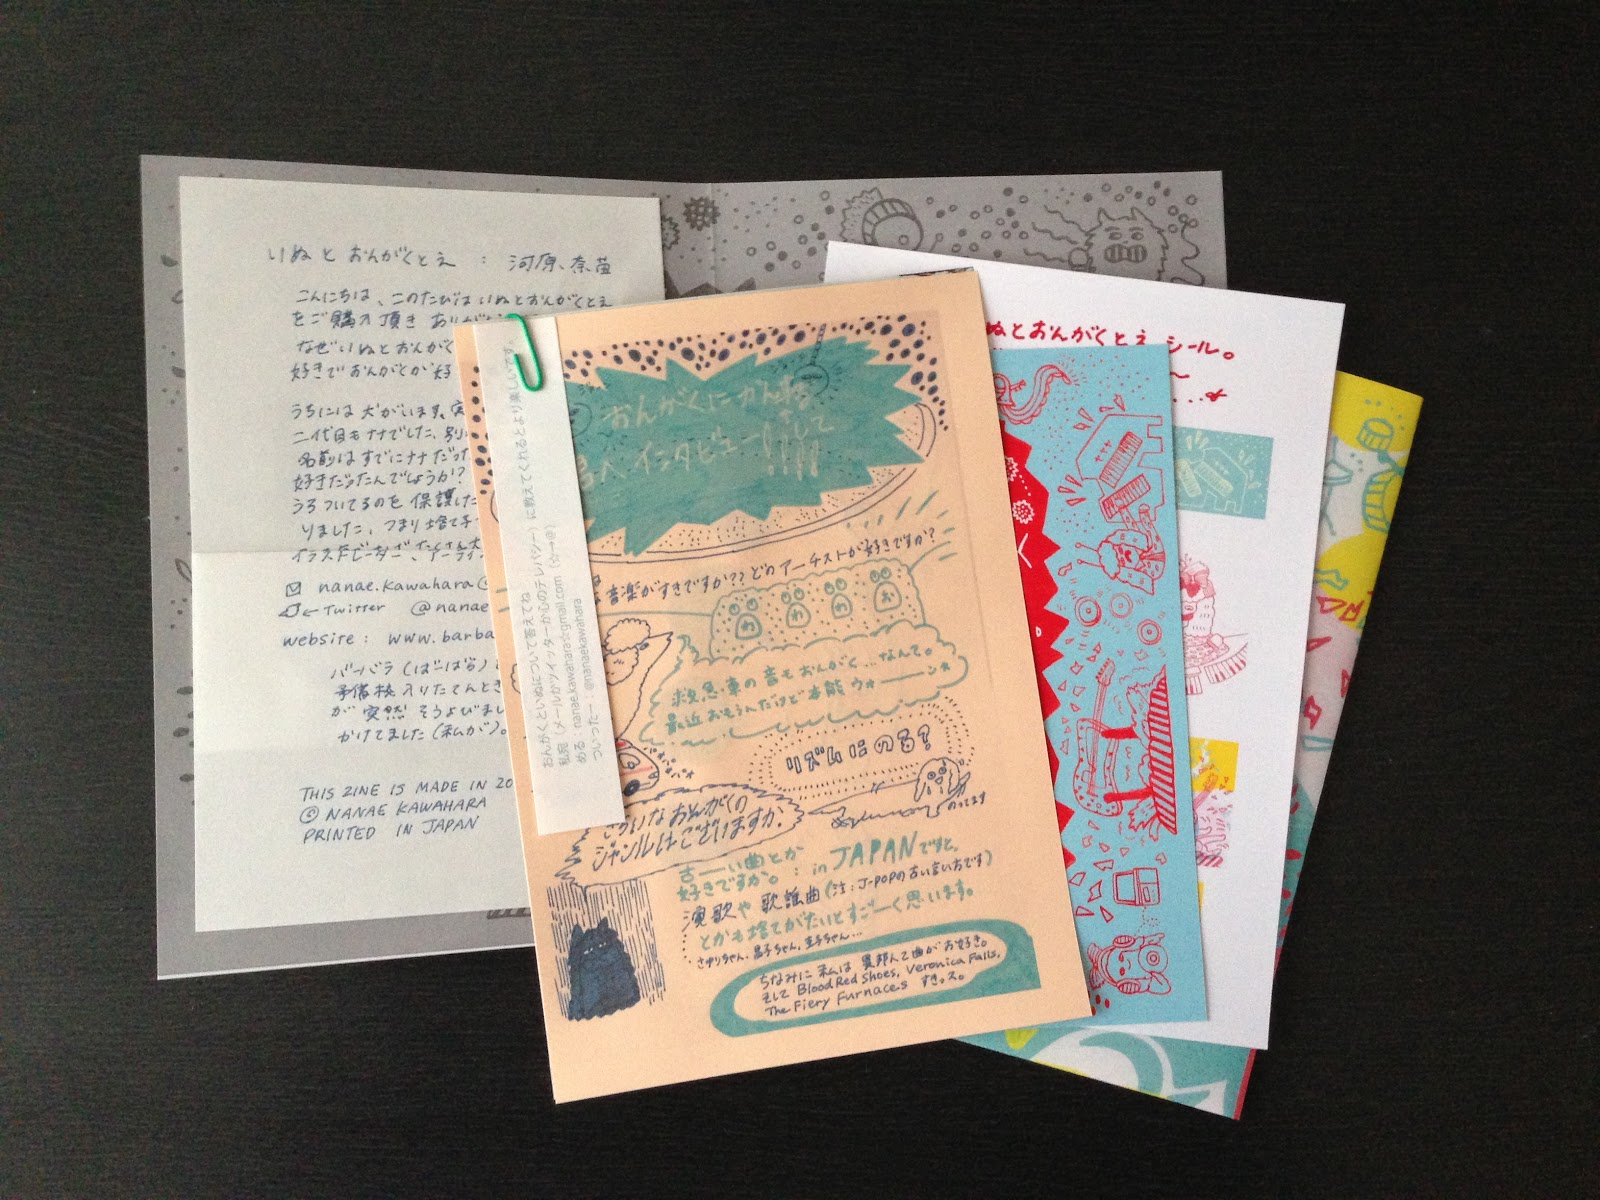 いぬ と おんがくとえ : 河原、奈苗
こんにちは、このたびは いぬとおんがくとえ
をご購入頂き ありがとう
なぜいぬとおんがく
好きでおんがくが好
うちには犬がいます。
二代目もナナでした、別に
名前はすでにナナだった
好きだったんでしょうか!?
うろついてるのを保護した
りました、つまり捨て子
nanae.kawahara@
←Twitter @nanae
website : www.barba
バーバラ(ばーばら)
予備校入りたてんとき
が突然そうよびまし
かけてました(私が)。
THIS ZINE IS MADE IN 20
© NANAE KAWAHARA
PRINTED IN JAPAN
おんがくといぬについて答えてね
私宛(メールかツイッターか心のテレパシー)に教えてくれるとより楽しいです。
める:nanae.kawahara☆gmail.com(☆→@)
ついったー @nanaekawahara
おんがくにかんして
へインタビュー!!!!!
音楽がすきですか?? どのアーチストが好きですか?
わ わ わ お
救急車の音もおんがく…なんて。
最近おもうんだけど本能 ウォーーーンス
リズムにのる?
のってます
きらいなおんがくの
ジャンルはございますか?
古ーい曲とか
好きですか。: in JAPANですと、
演歌や歌謡曲(注:J-POPの古い言い方です)
とかも捨てがたいとすごーく思います。
さゆりちゃん、晶子ちゃん、
ちなみに私は異邦人て曲がお好き。
そして Blood Red Shoes, Veronica Falls,
The Fiery Furnaces すきっス。
ぬとおんがくとえ シール。